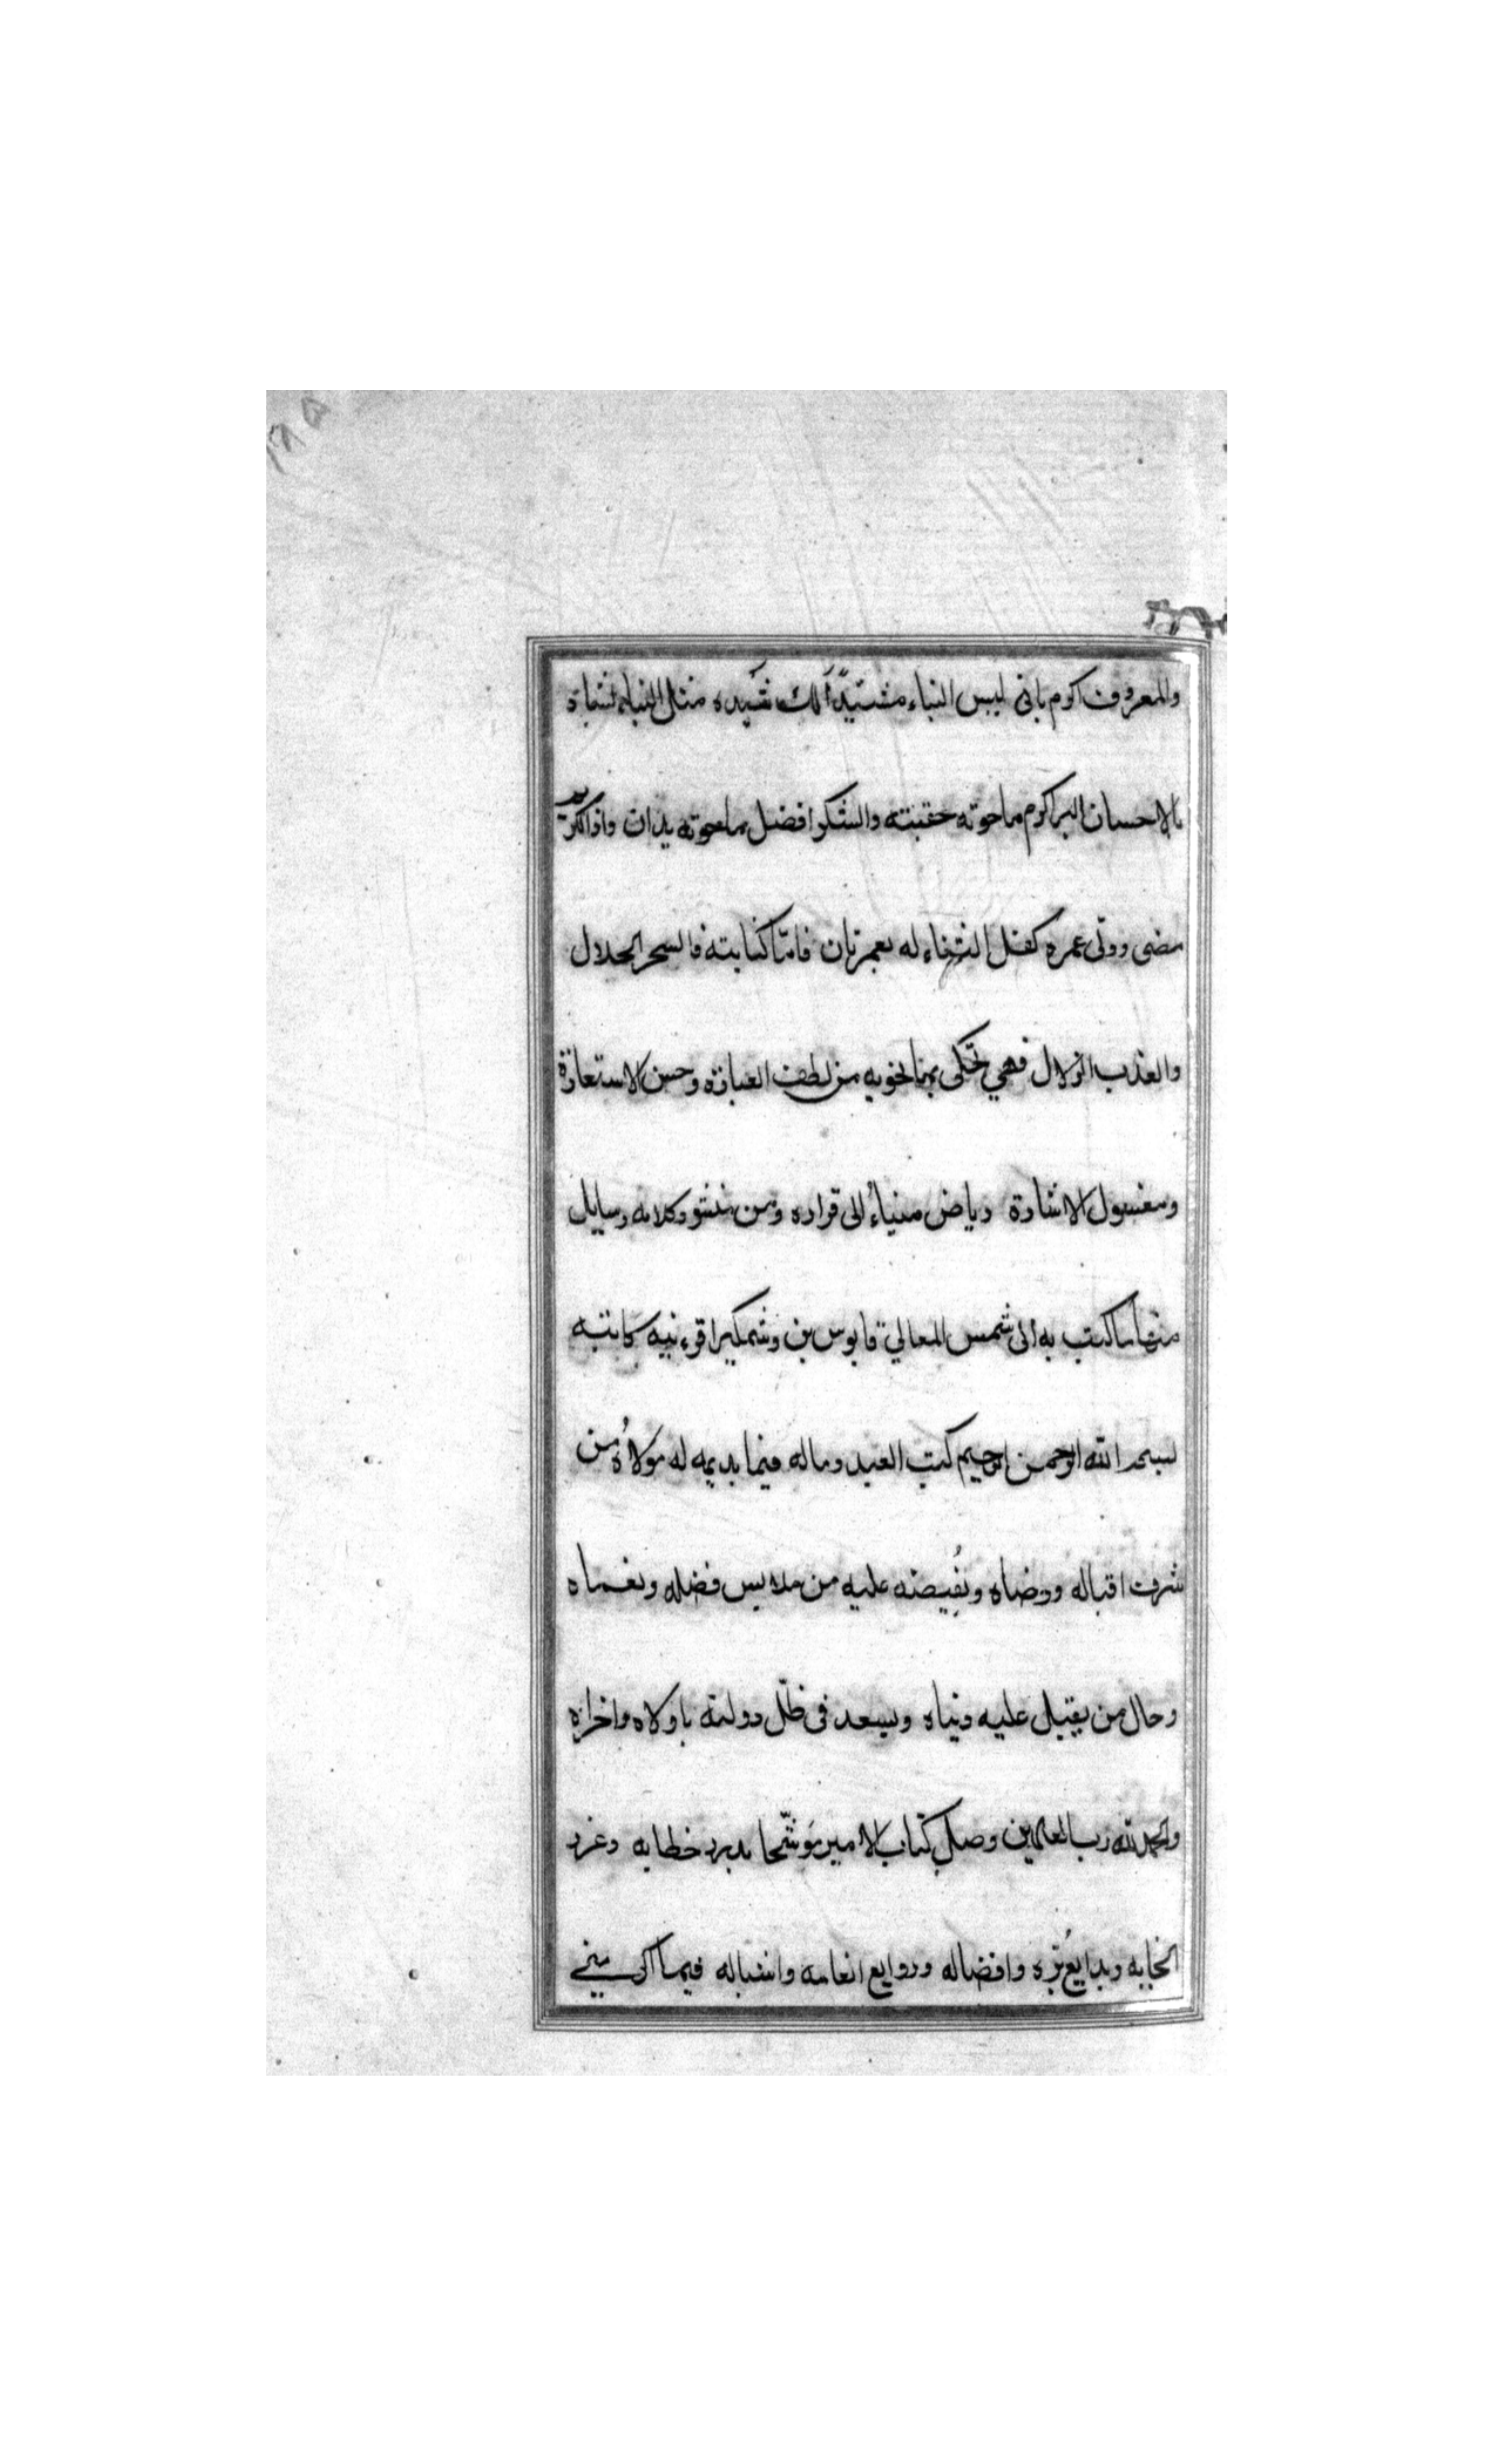 ١٨٥
والمعروف اكرم بانى ليس البناء مشيّدًا لك شيده مثل البناء يشاد
بالاحسان البر اكرم ماحوته حقيبته والشكر افضل ماحوته يدان واذا الكريم
مضى وولّى عمره كفل الثناء له بعمر ثان فامّا كتابته فالسحر الحلال
والعذب الزلال فهي تحكى بما تحويه من لطف العبارة وحسن الاستعارة
ومعسول الاشارة رياض ميثاء الى قراره ومن منثور كلامه رسايل
منها ما كتب به الى شمس المعالي قابوس بن وشمكير
بسم الله الرحمن الرحيم كتب العبد وماله فيما يديمه له مولاه من
شرف اقباله ورضاه ويُفيضه عليه من ملابس فضله ونعماه
وحال من يقبل عليه دنياه ويسعد فى ظلّ دولته باولاه واخراه
والحمد لله رب العلمين وصل كتاب الامير موشّحا بدرر خطابه وغرر
وبدايع برّه وافضاله وروايع انعامه واشباله فيما اكرمني